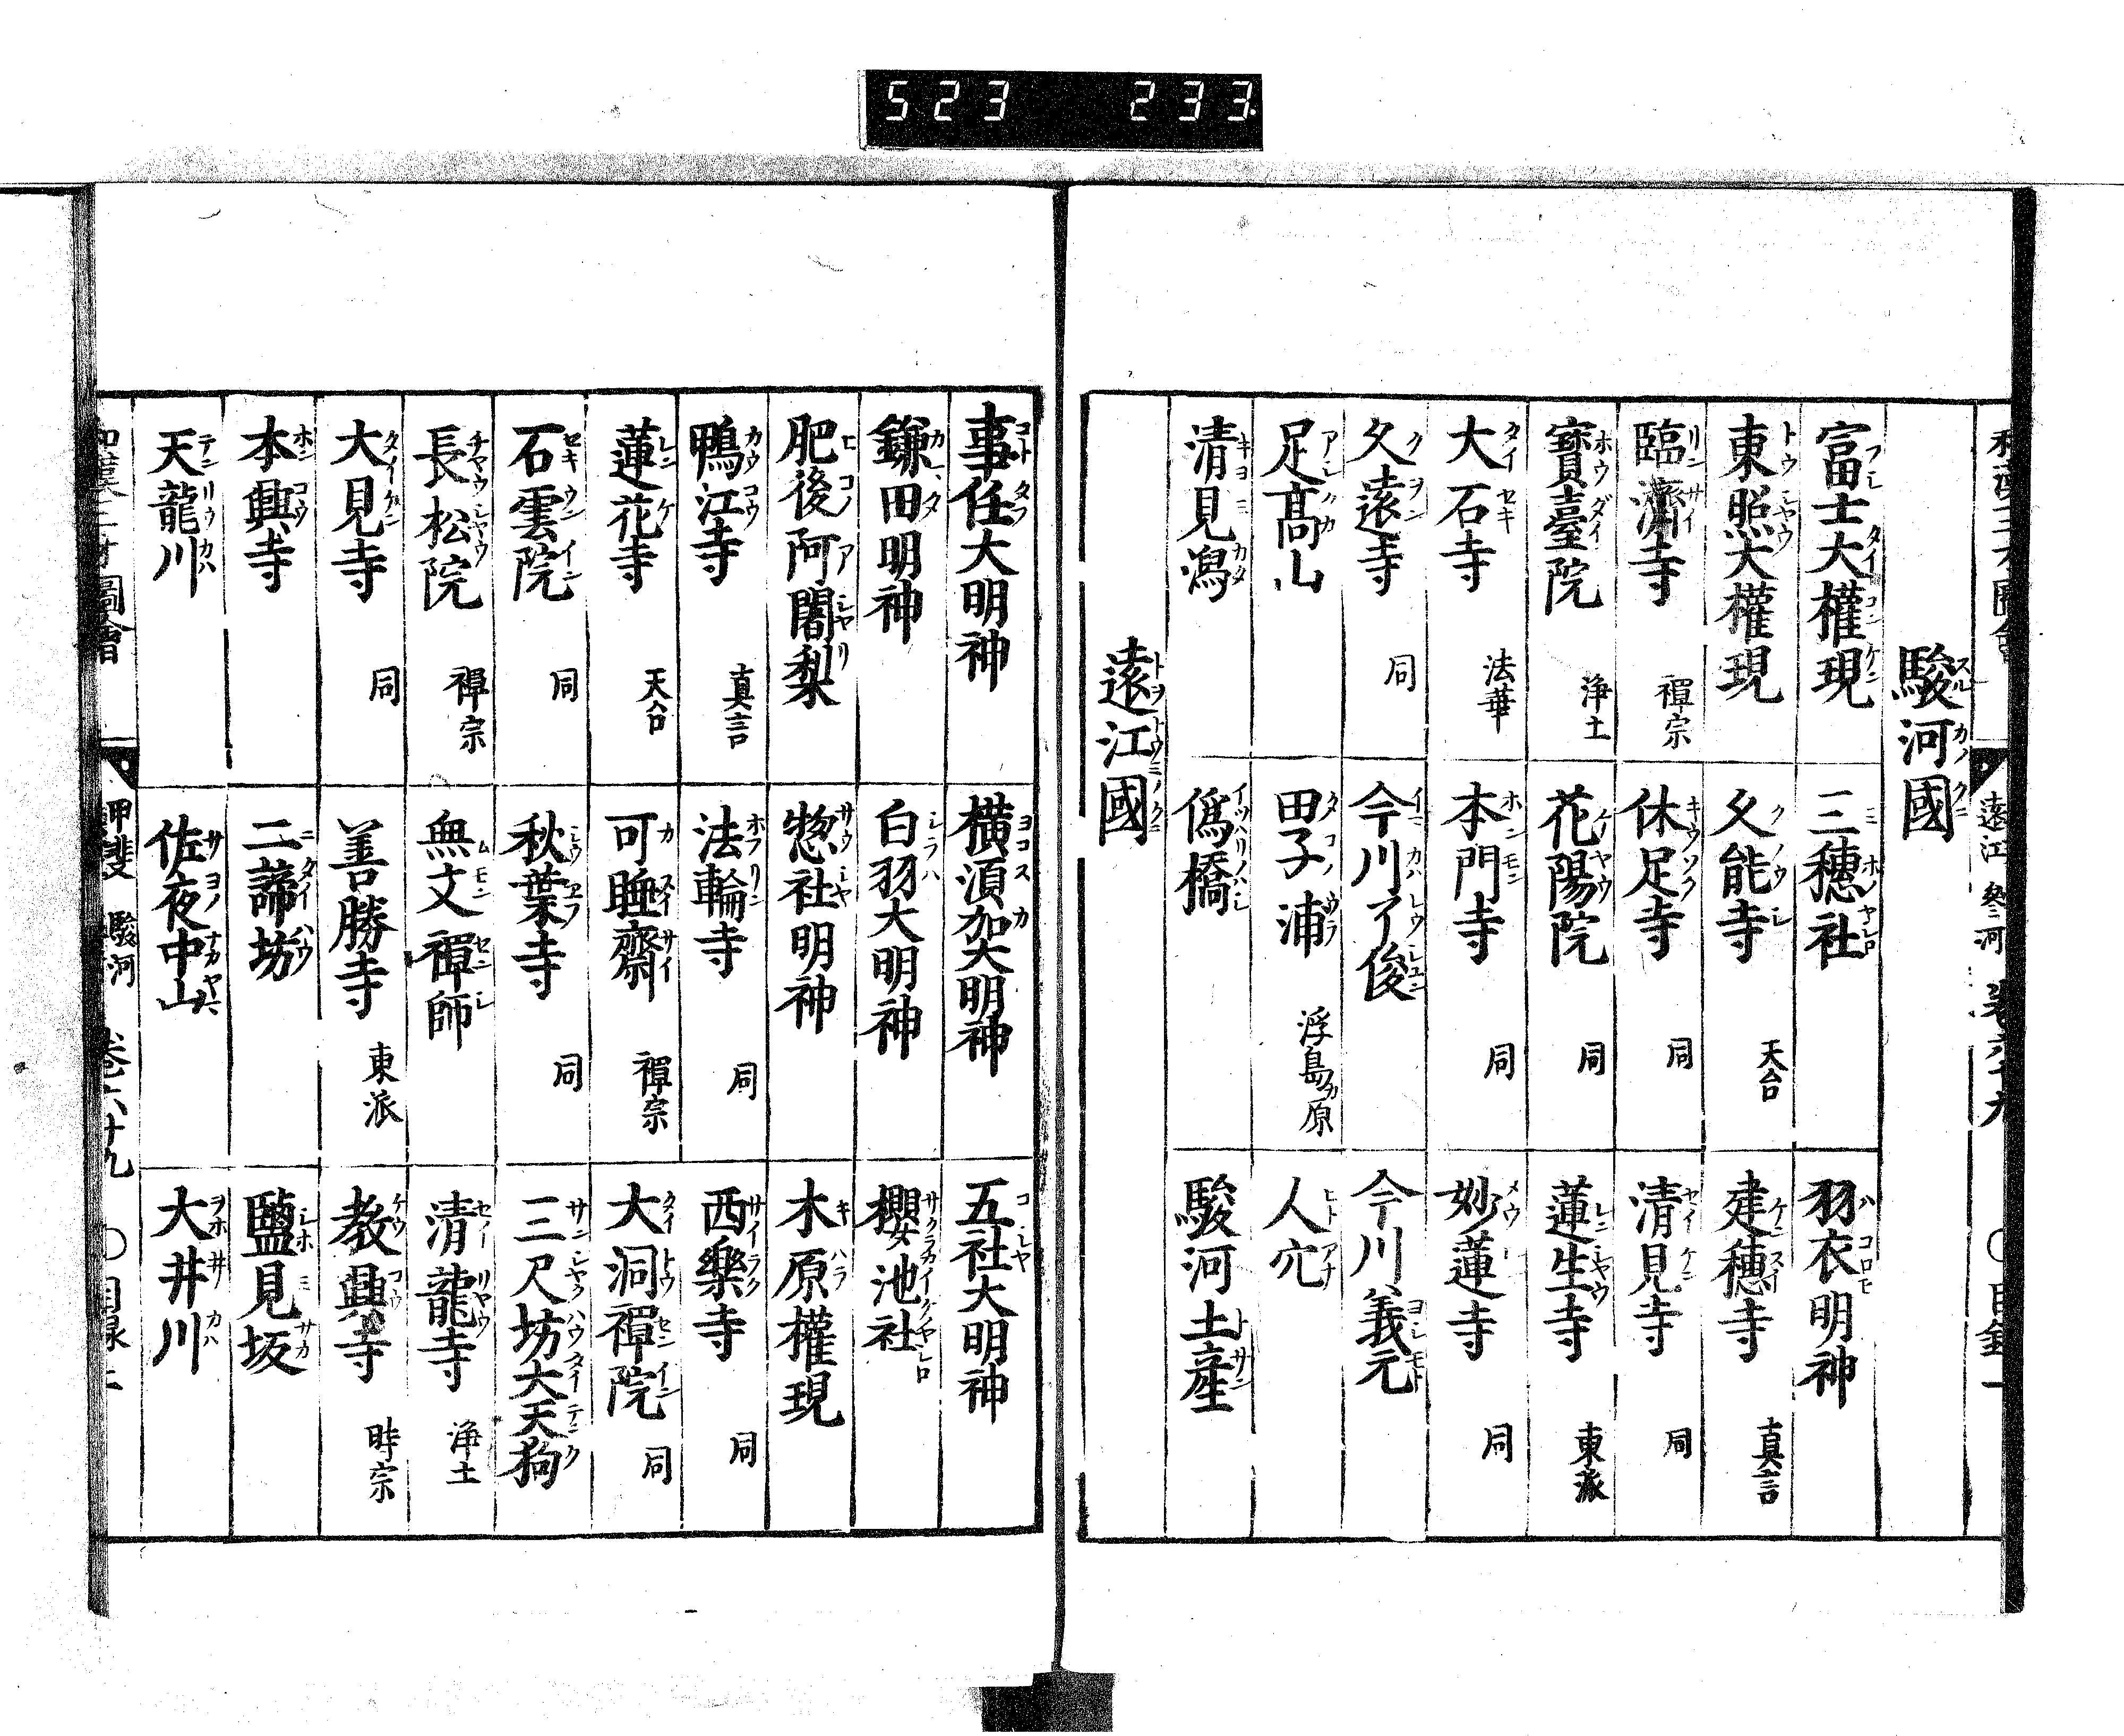 523 233
駿河國
富士大權現 三穗社 羽衣明神
東照大權現 久能寺 天台 建穗寺 真言
臨濟寺 禪宗 休足寺 同 清見寺 同
寶臺院 浄土 花陽院 同 蓮生寺 東派
大石寺 法華 本門寺 同 妙蓮寺 同
久遠寺 同 今川了俊 今川義元
足髙山 田子浦 浮島カ原 人穴
清見潟 僞橋 駿河土産
遠江國
事任大明神 横須加大明神 五社大明神
鎌田明神 白羽大明神 櫻池社
肥後阿闍梨 惣社明神 木原權現
鴨江寺 真言 法輪寺 同 西樂寺 同
蓮花寺 天台 可睡齋 禪宗 大洞禪院 同
石雲院 同 秋葉寺 同 三尺坊大天狗
長松院 禪宗 無文禪師 清龍寺 浄土
大見寺 同 善勝寺 東派 教興寺 時宗
本興寺 二諦坊 鹽見坂
天龍川 佐夜中山 大井川
甲斐 駿河 卷六十九 〇目録二